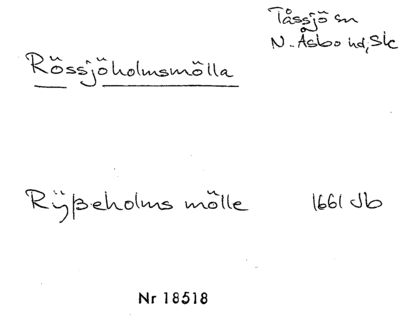 Tåssjö sn
N. Åsbo hd, Sk
Rössjöholmsmölla
Rÿßeholms mölle 1661 Jb
Nr 18518